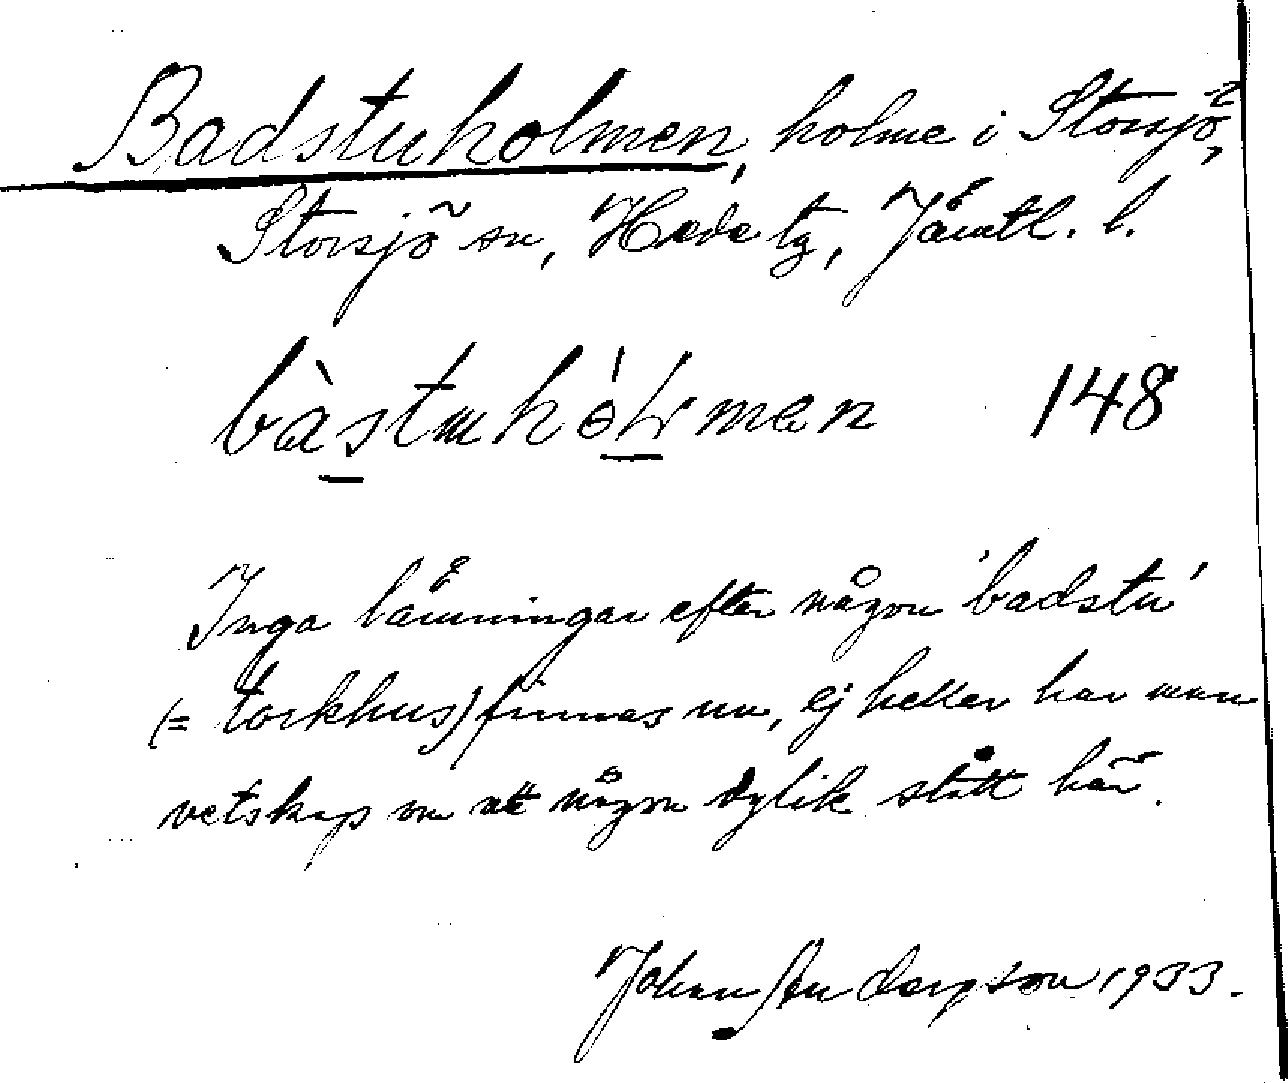 Badstuholmen, holme i Storsjö,
Storsjö sn, Hede tg, Jämtl. l.
148
Inga lämningar efter någon 'badstu'
(= torkhus) finnes nu, ej heller har man
vetskap om att någon dylik stått här.
Johan Anderson 1933.